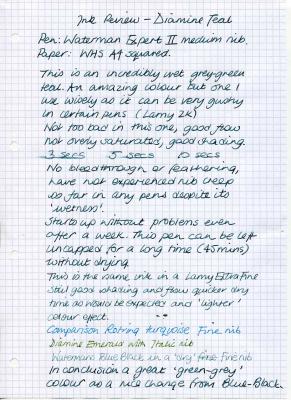 Ink Review - Diamine Teal
Pen: Waterman Expert II medium nib.
Paper: WHS A4 squared.
This is an incredibly wet grey-green
teal. An amazing colour but one I
use wisely as it can be very gushy
in certain pens (Lamy 2k)
Not too bad in this one, good flow
not overly saturated, good shading.
3 secs 5 secs 10 secs
No bleedthrough or feathering,
have not experienced nib creep
so far in any pens despite its
'wetness'.
Starts up without problems even
after a week. This pen can be left
uncapped for a long time (45mins)
without drying
This is the same ink in a Lamy Extra Fine
Still good shading and flow quicker dry
time as would be expected and 'lighter'
colour effect.
Comparison Rotring turquoise Fine nib
Diamine Emerald with Italic nib
Waterman Blue Black in a 'dry' fine Fine nib
In conclusion a great 'green-grey'
colour as a nice change from Blue-Black.